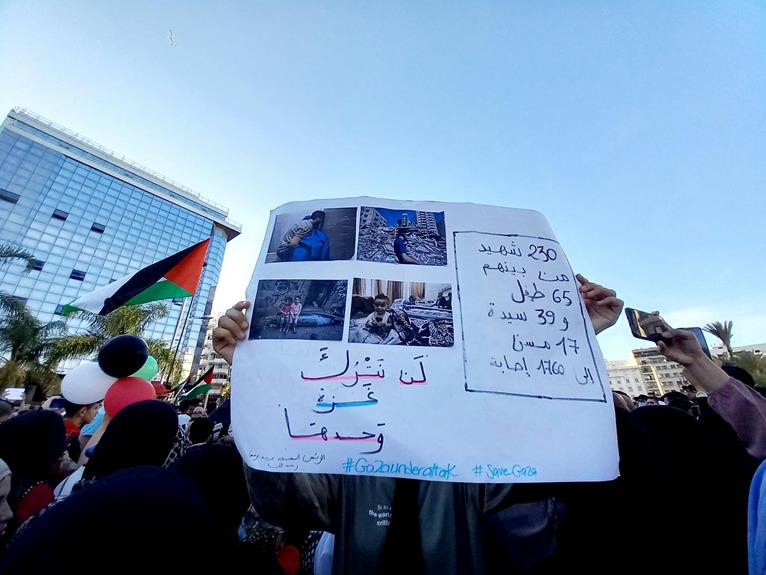 230 شهيد
من بينهم
65 طفل
و 39 سيدة
17 مسن
الى 1760 إصابة
لَن نَتْرُكَ
غَزة
وَحدهَا
#Gazaunderattak #SaveGaza
the world